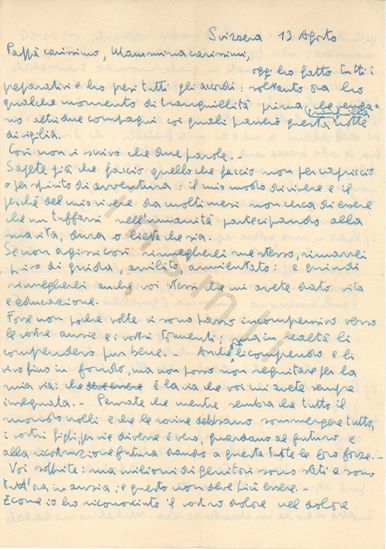 Svizzera 13 Agosto
Pappà carissimo, Mammina carissimi,
oggi ho fatto tutti i
preparativi e ho presi tutti gli accordi: soltanto ora ho
qualche momento di tranquillità prima che venga-
no altri due compagni coi quali passerò questa notte
di vigilia.
Così non vi scrivo che due parole.-
Sapete già che faccio quello che faccio non per capriccio
o per spirito di avventura: il mio modo di vivere e il
perché del mio vivere da molti mesi non cerca di essere
che un tuffarsi nell'umanità partecipando alla
sua vita, dura o lieta che sia:
Se non agissi così rinnegherei me stesso, rimarrei
privo di guida, avvilito, annientato: e quindi
rinnegherei anche voi stessi che mi avete dato vita
e educazione.
Forse non poche volte vi sono parso incomprensivo verso
le vostre ansie e i vostri tormenti; ma in realtà li
comprendevo pur bene.- Anche li comprendo e li
vivo fino in fondo, ma non posso non seguitare per la
mia via: che è la via che voi mi avete sempre
insegnata.- Pensate che mentre sembra che tutto il
mondo crolli e che le rovine debbano sommergere tutto,
i vostri figli, per vie diverse è vero, guardano al futuro e
alla ricostruzione futura dando a questa tutte le loro forze.-
Voi soffrite: ma milioni di genitori sono stati e sono
tutt'ora in ansia; e questo non deve più essere.-
E come io ho riconosciuto il vostro dolore nel dolore